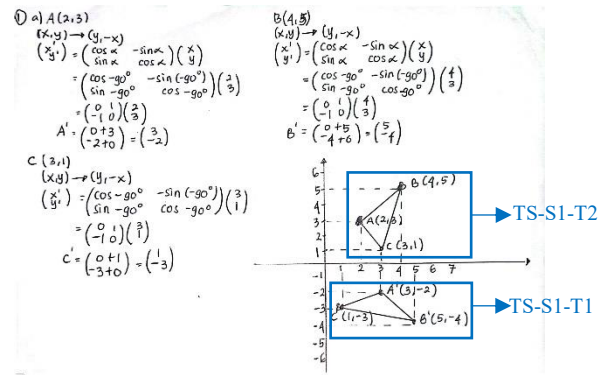 ① a) A(2,3)
(x,y) → (y,-x)
(x' y') = (cos α -sin α sin α cos α)(x y)
= (cos -90° -sin(-90°) sin -90° cos -90°)(2 3)
= (0 1 -1 0)(2 3)
A' = (0+3 -2+0) = (3 -2)
C (3,1)
(x,y) → (y,-x)
(x' y') = (cos -90° -sin(-90°) sin -90° cos -90°)(3 1)
= (0 1 -1 0)(3 1)
C' = (0+1 -3+0) = (1 -3)
B(4,5)
(x,y) → (y,-x)
(x' y') = (cos α -sin α sin α cos α)(x y)
= (cos -90° -sin(-90°) sin -90° cos -90°)(4 3)
= (0 1 -1 0)(4 3)
B' = (0+5 -4+6) = (5 -4)
6
5
4
3
2
1
B(4,5)
A(2,3)
C(3,1)
TS-S1-T2
1 2 3 4 5 6 7
-1
-2
-3
-4
-5
-6
A'(3,-2)
C'(1,-3)
B'(5,-4)
TS-S1-T1